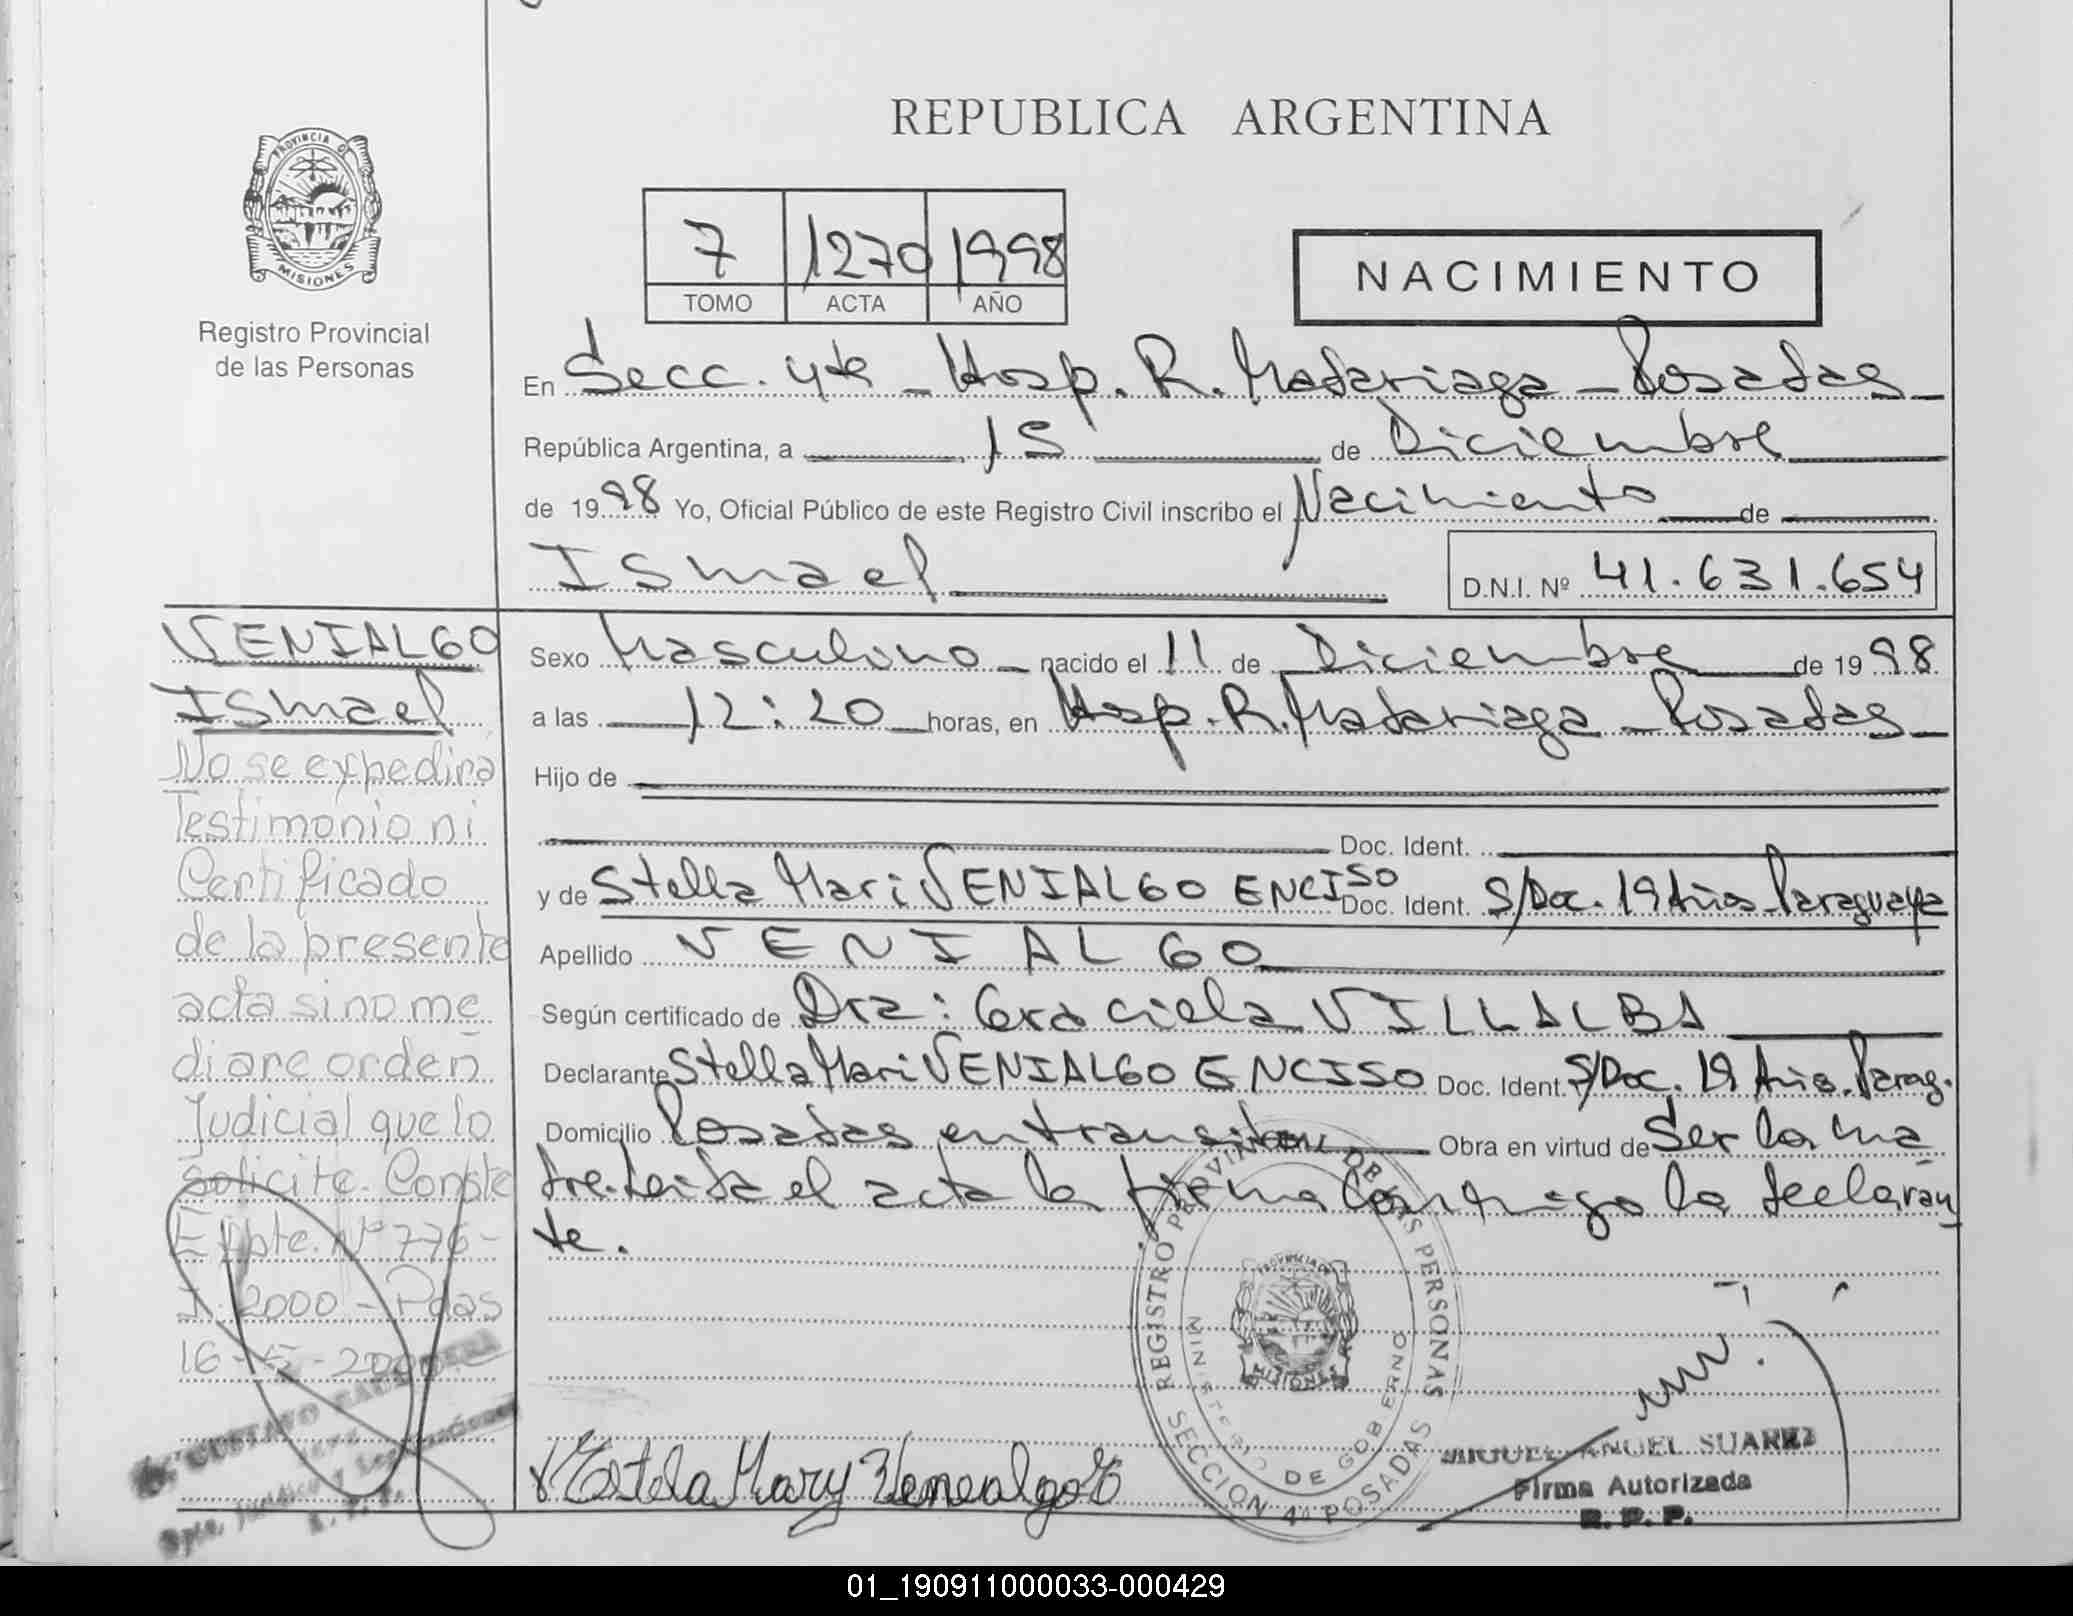 REPUBLICA ARGENTINA
PROVINCIA D
MISIONES
Registro Provincial
de las Personas
7 1270 1998
TOMO ACTA AÑO
NACIMIENTO
En Secc. 4ta - Hosp. R. Madariaga - Posadas -
República Argentina, a 15 de Diciembre
de 1998 Yo, Oficial Público de este Registro Civil inscribo el Nacimiento de
Ismael
D.N.I. Nº 41.631.654
VENIALGO
Ismael
No se expedirá
Testimonio ni
Certificado
de la presente
acta si no me
diare orden
Judicial que lo
solicite. Conste
Expte. Nº 776-
I. 2000 - Pdas
16 - - 2000
GUSTAVO
Sexo Masculino - nacido el 11 de Diciembre de 1998
a las 12:20 horas, en Hosp. R. Madariaga - Posadas -
Hijo de
Doc. Ident.
y de Stella Mari VENIALGO ENCISO Doc. Ident. S/Doc. 19 Años Paraguaya
Apellido VENIALGO
Según certificado de Dra: Graciela VILLALBA
Declarante Stella Mari VENIALGO ENCISO Doc. Ident. S/Doc. 19 Años. Parag.
Domicilio Posadas en transito Obra en virtud de Ser la ma
dre. Leida el acta la firma conmigo la declaran
te.
REGISTRO PROVINCIAL DE LAS PERSONAS
MINISTERIO DE GOBIERNO
SECCION 4ª POSADAS
MISIONES
Estela Mary Venealgo E
MIGUEL ANGEL SUAREZ
Firma Autorizada
R. P. P.
01_190911000033-000429